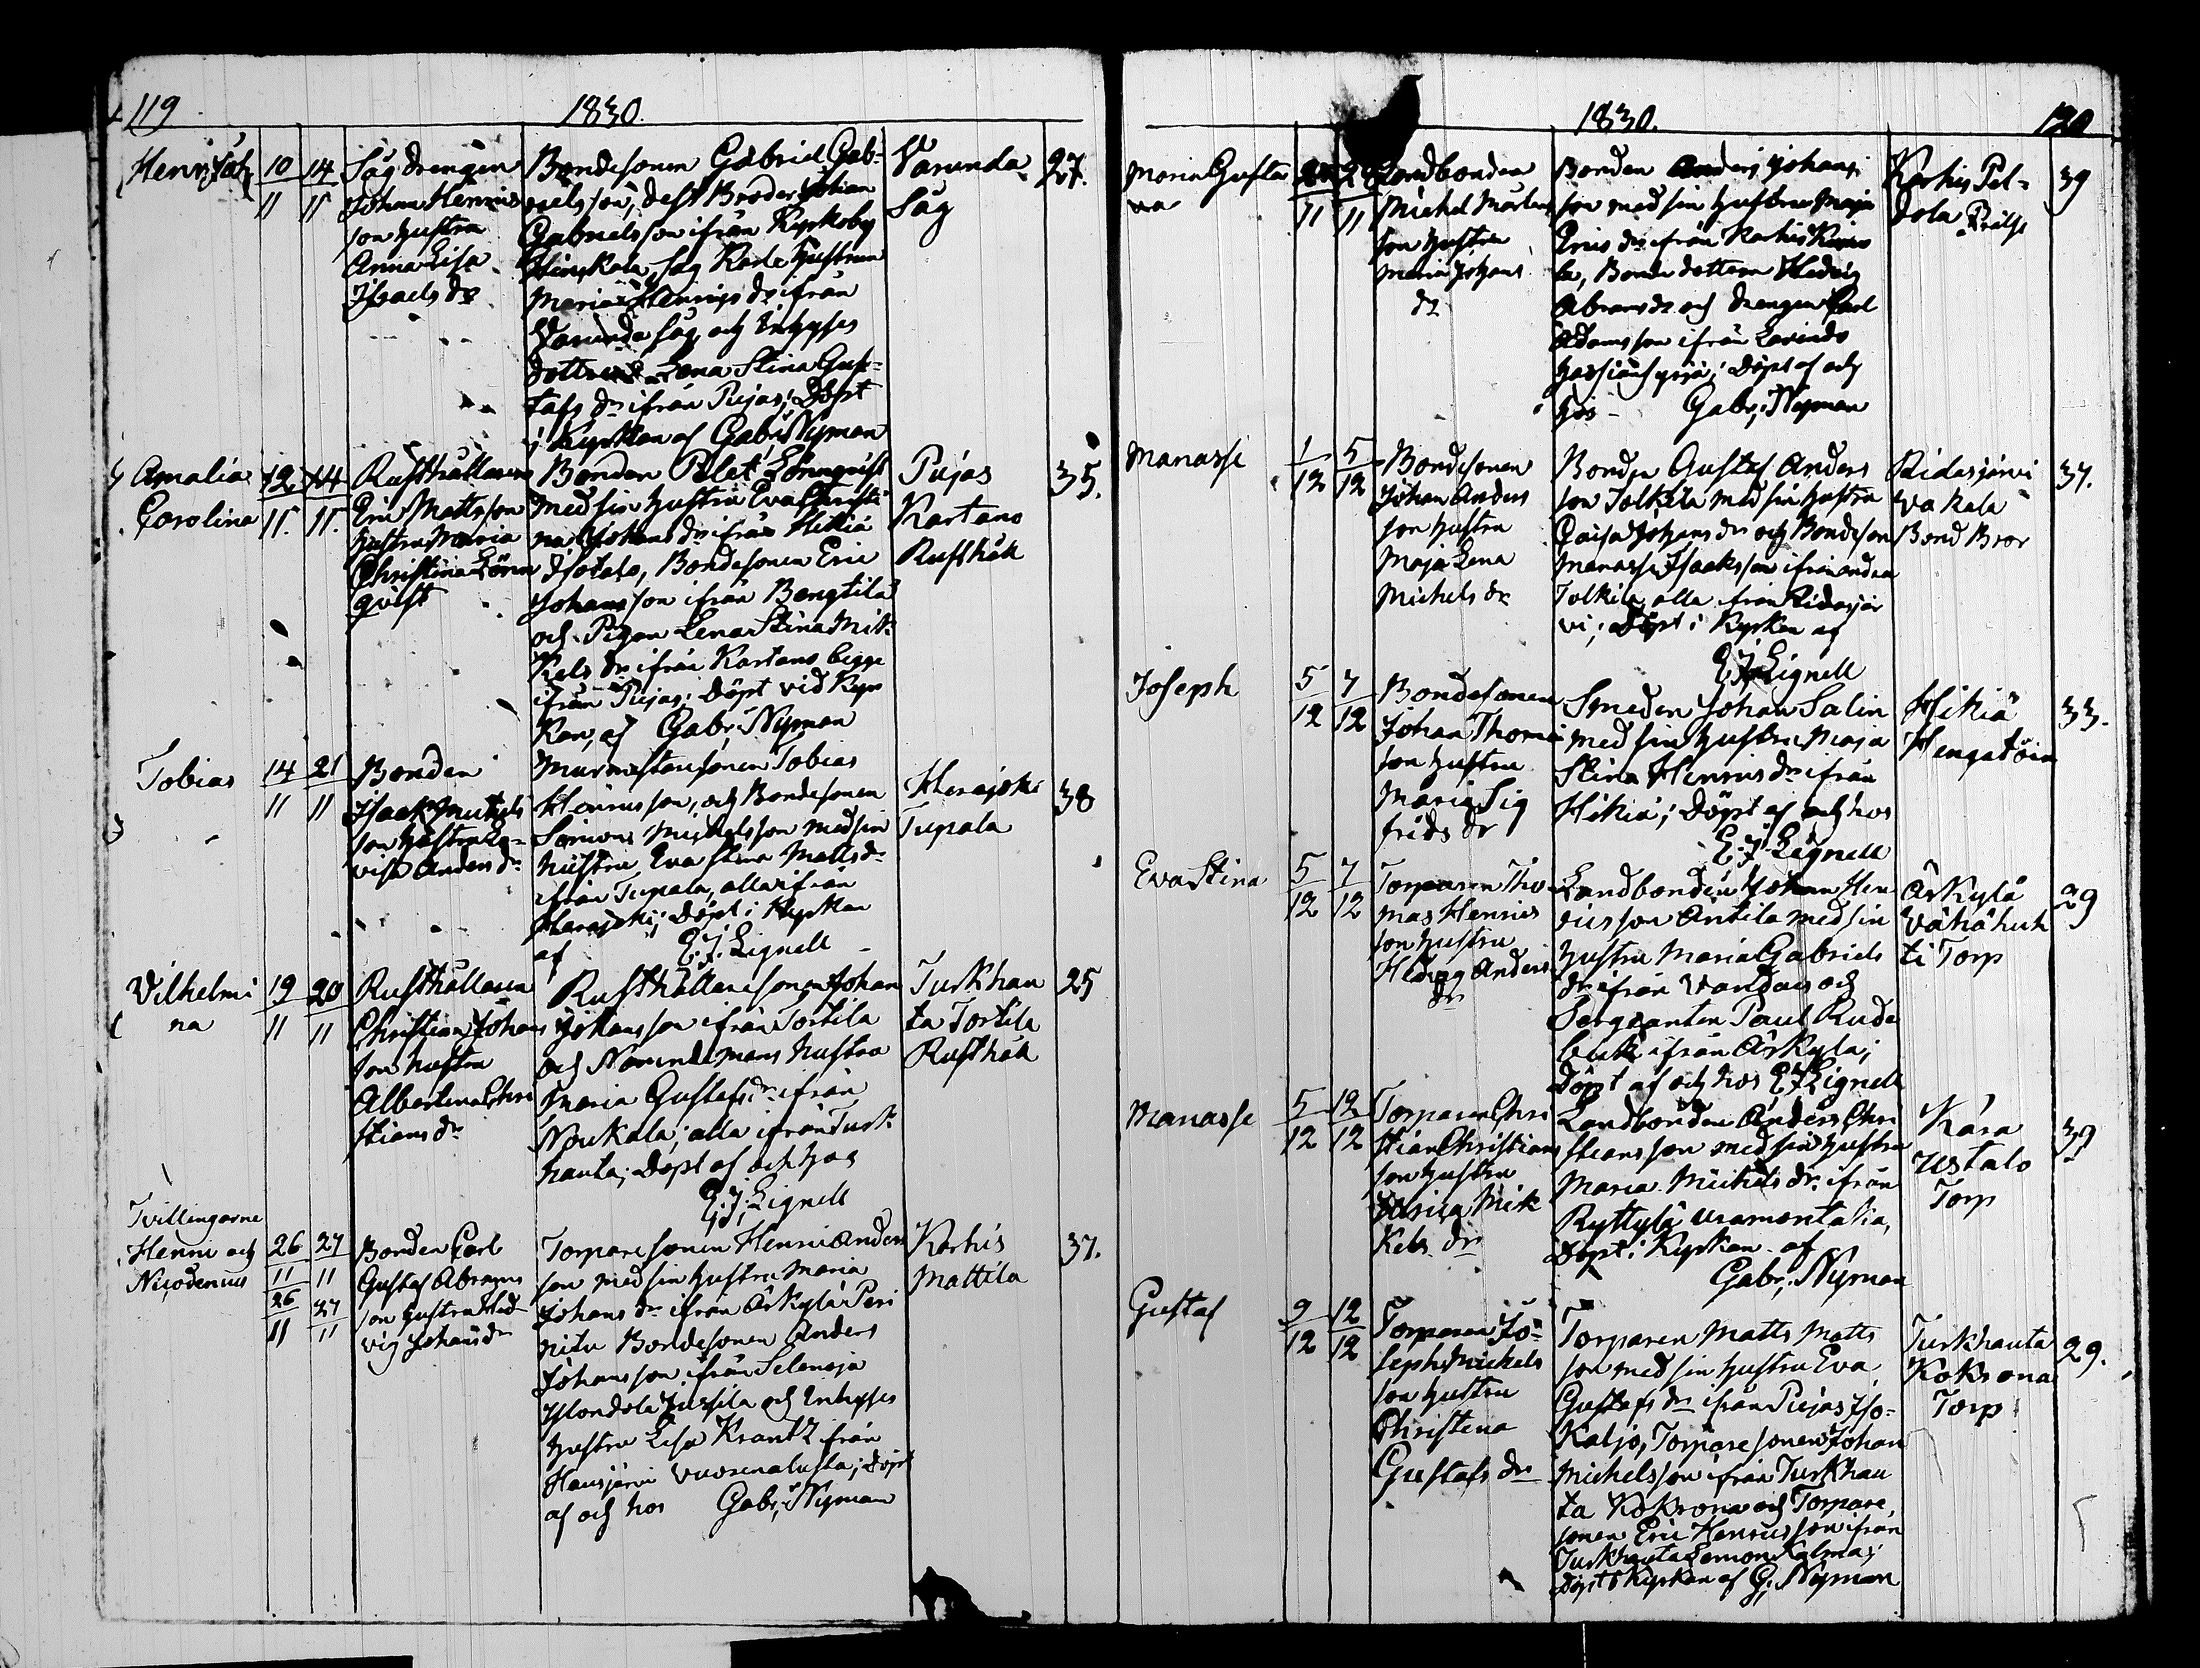 119
1830.
Henr: Joh:
10 14
11 11
Såg drengen
Johan Henrics
son hustru
Anna Lisa
Isaels dr
Bondesonen Gabriel Gab-
riels son, dess Broder Johan
Gabrielsson ifrån Kyrkoby
Såg Karls hustrun
Maria Henrics dr ifrån
Varunda Såg och Inhyses
dottren Lena Stina Gus-
tafs dr ifrån Pujas; Döpt
i Kyrkan af Gabr: Nyman
Varunda
Såg
27.
Amalia
Carolina
12 14
11. 11.
Rusthållaren
Eric Mattsson
hustru Maria
Christina Lönn
qvist
Bonden Lönnqvist
med sin hustru Eva Christi
na Johans dr ifrån Hikiä
Isotalo, Bondesonen Eric
Johansson ifrån Bengtilä
och Pigan Lena Stina Mic-
kels dr ifrån Kartano begge
ifrån Pujas; Döpt vid Kyr
kan, af Gabr: Nyman
Pujas
Kartano
Rusthåll
35.
Tobias
14 21
11 11
Bonden
Isaak Michels
son hustru Lo-
visa Anders dr
Murmästaresonen Tobias
Henricsson, och Bondesonen
Simons Michelsson med sin
hustru Eva Stina Matts dr
ifrån Tupala, alla ifrån
Herajoki; Döpt i Kyrkan
af E. J. Lignell
Herajoki
Tupala
38
Vilhelmi
na
19 20
11 11
Rusthållaren
Christian Johans
son hustru
Albertina Chri
stians dr
Rusthållaresonen Johan
Johansson ifrån Tortila
och Nämndemans hustru
Maria Gustafs dr ifrån
Noukala; alla ifrån Turk-
hauta; Döpt af och hos
E. J. Lignell
Turkhau
ta Tortila
Rusthåll
25
Tvillingarne
Henric och
Nicodemus
26 27
11 11
26 27
11 11
Bonden Carl
Gustaf Abrams
son hustru Hed
vig Johans dr
Torparesonen Henric Anders
son med sin hustru Maria
Johans dr ifrån Ärkylä Peri
nitu Bondesonen Anders
Johansson ifrån Selenoja
Yslondola Jussila och Inhyses
hustru Lisa Krantz ifrån
Hausjärvi Vuorenalusta; Döpt
af och hos Gabr: Nyman
Karhis
Mattila
37.
1830.
120
Maria Gusta
va
11 11
Landbonden
Michel Mårtens
son hustru
Maria Johans
dr
Bonden Anders Johans
son med sin hustru Maja
Erics dr ifrån Karhis
la, Bonde dottern Hedvig
Abrams dr och drengen Carl
Adamsson ifrån Lavindo
Döpt af och
hos Gabr: Nyman
Karhis Pel-
dola
39
Manasse
1 5
12 12
Bondesonen
Johan Anders
son hustru
Maja Lena
Michels dr
Bonden Gustaf Anders
son Tolkila med sin hustru
Caisa Johans dr och Bondeson
Manasse Isaksson ifrån andra
Tolkila, alla ifrån Ridasjär
vi; Döpt i Kyrkan af
E. J. Lignell
Ridasjärvi
Vakala
Bond Bror
37.
Joseph
5 7
12 12
Bondesonen
Johan Thomas
son hustru
Maria Sig
frids dr
Smeden Johan Salin
med sin hustru Maja
Stina Henrics dr ifrån
Hikiä; Döpt af och hos
E. J. Lignell
Hikiä
33.
Eva Stina
5 7
12 12
Torparen Tho
mas Henrics
son hustru
Hedvig Anders
dr
Landbonden Johan Hen
ricsson Antila med sin
hustru Maria Gabriels
dr ifrån Vantais och
Sergeanten Paul Rude
beck ifrån Ärkylä;
Döpt af och hos E. J. Lignell
Ärkylä
Vähähuh
ti Torp
29
Manasse
5 12
12 12
Torparen Chri
stian Christians
son hustru
Ulrica Mik
kels dr
Landbonden Anders Chri
stiansson med sin hustru
Maria Michels dr ifrån
Ryttylä Uramontalia,
Döpt i Kyrkan af
Gabr: Nyman
Kara
Ustalo
Torp
39
Gustaf
9 12
12 12
Torparen Jo-
seph Michels
son hustru
Christina
Gustafs dr
Torparen Matts Matts
son med sin hustru Eva
Gustafs dr ifrån Pujas Iso-
kaljo, Torparesonen Johan
Michelsson ifrån Turkhau
ta Kokrona och Torpare
sonen Eric Henricsson ifrån
Turkhauta Lemon Kalma;
Döpt i Kyrkan af G: Nyman
Turkhauta
Kokrona
Torp
29.